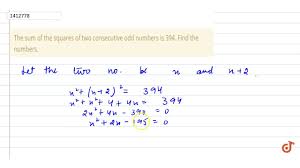 1412778
The sum of the squares of two consecutive odd numbers is 394. Find the
numbers.
Let the two no. be x and x+2.
x² + (x+2)² = 394
x² + x² + 4 + 4x = 394
2x² + 4x - 390 = 0
x² + 2x - 195 = 0